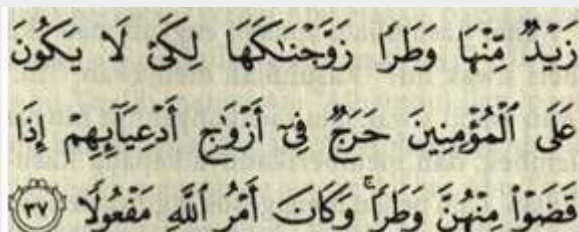 زَيْدٌ مِّنْهَا وَطَرًا زَوَّجْنَـٰكَهَا لِكَىْ لَا يَكُونَ
عَلَى ٱلْمُؤْمِنِينَ حَرَجٌ فِىٓ أَزْوَٰجِ أَدْعِيَآئِهِمْ إِذَا
قَضَوْا۟ مِنْهُنَّ وَطَرًا ۚ وَكَانَ أَمْرُ ٱللَّهِ مَفْعُولًا ٣٧